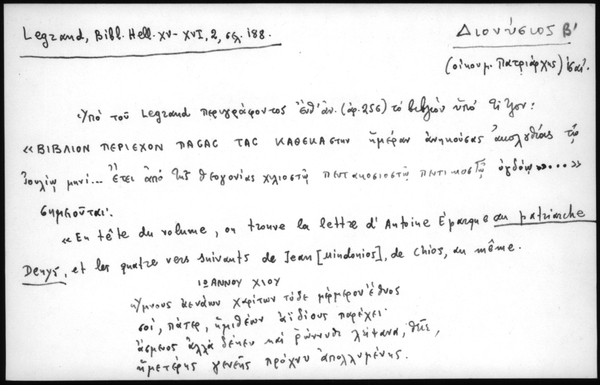 Legrand, Bibl. Hell. XV-XVI, 2, σελ. 188.
Διονύσιος Β'
(οἰκουμ. Πατριάρχης)
Ὑπὸ τοῦ Legrand περιγράφοντος ἐνθ' ἀν. (ἀρ. 256) τὸ βιβλίον ὑπὸ τίτλον:
«ΒΙΒΛΙΟΝ ΠΕΡΙΕΧΟΝ ΠΑCΑC ΤΑC ΚΑΘΕΚΑCΤΗΝ ἡμέραν ἀνηκούσας ἀκολουθίας τῷ
ἰουλίῳ μηνί... Ἔτει ἀπὸ τῆς θεογονίας χιλιοστῷ πεντακοσιοστῷ πεντικοστῷ ὀγδόῳ....»
σημειοῦται:
«En tête du volume, on trouve la lettre d'Antoine Éparque au patriarche
Denys, et les quatre vers suivants de Jean [Mindonios], de Chios, au même.
ΙΩΑΝΝΟΥ ΧΙΟΥ
Ὕμνους ἀενάων χαρίτων τόδε μέρμερον ἔθνος
σοί, πάτερ, ἡμιθέων ἀϊδίους παρέχει·
ἄσμενος ἀλλὰ δέχευ καὶ ῥώννυθι λείψανα,
ἡμετέρης γενεῆς πρόχνυ ἀπολλυμένης.